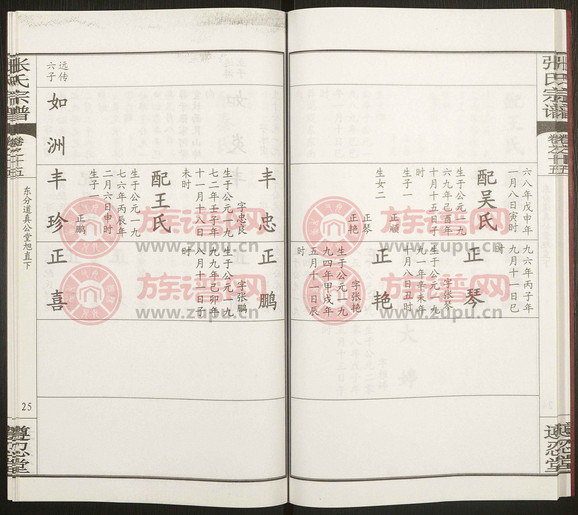 张氏宗谱
卷之廿五
六八年戊申年
一月八日寅时
配吴氏
生于公元一九
六九年己酉年
十月十五日子
时
生子一
正顺
生女二
正琴
正艳
九六年丙子年
九月十一日巳
时
正琴
字张琴
生于公元一九
九一年辛未年
十月八日丑时
正艳
字张艳
生于公元一九
九四年甲戌年
五月十一日辰
时
六子
如洲
丰忠
字忠良
生于公元一九
七二年壬子年
十一月十八日
未时
配王氏
生于公元一九
七六年丙辰年
二月六日申时
生子
正鹏
丰珍
正鹏
字张鹏
生于公元一九
九九年己卯年
八月十一日子
时
正喜
张氏宗谱
卷之廿五
东分道真公堂旭直下
25
族谱网
www.zupu.cn
族谱网
www.zupu.cn
族谱网
www.zupu.cn
族谱网
www.zupu.cn